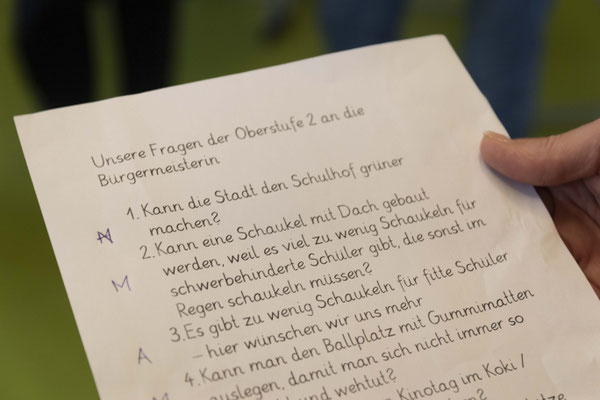 Unsere Fragen der Oberstufe 2 an die
Bürgermeisterin
1. Kann die Stadt den Schulhof grüner
machen?
N
2. Kann eine Schaukel mit Dach gebaut
werden, weil es viel zu wenig Schaukeln für
M
schwerbehinderte Schüler gibt, die sonst im
Regen schaukeln müssen?
3. Es gibt zu wenig Schaukeln für fitte Schüler
A
– hier wünschen wir uns mehr
4. Kann man den Ballplatz mit Gummimatten
auslegen, damit man sich nicht immer so
und wehtut?
Kinotag im Koki /